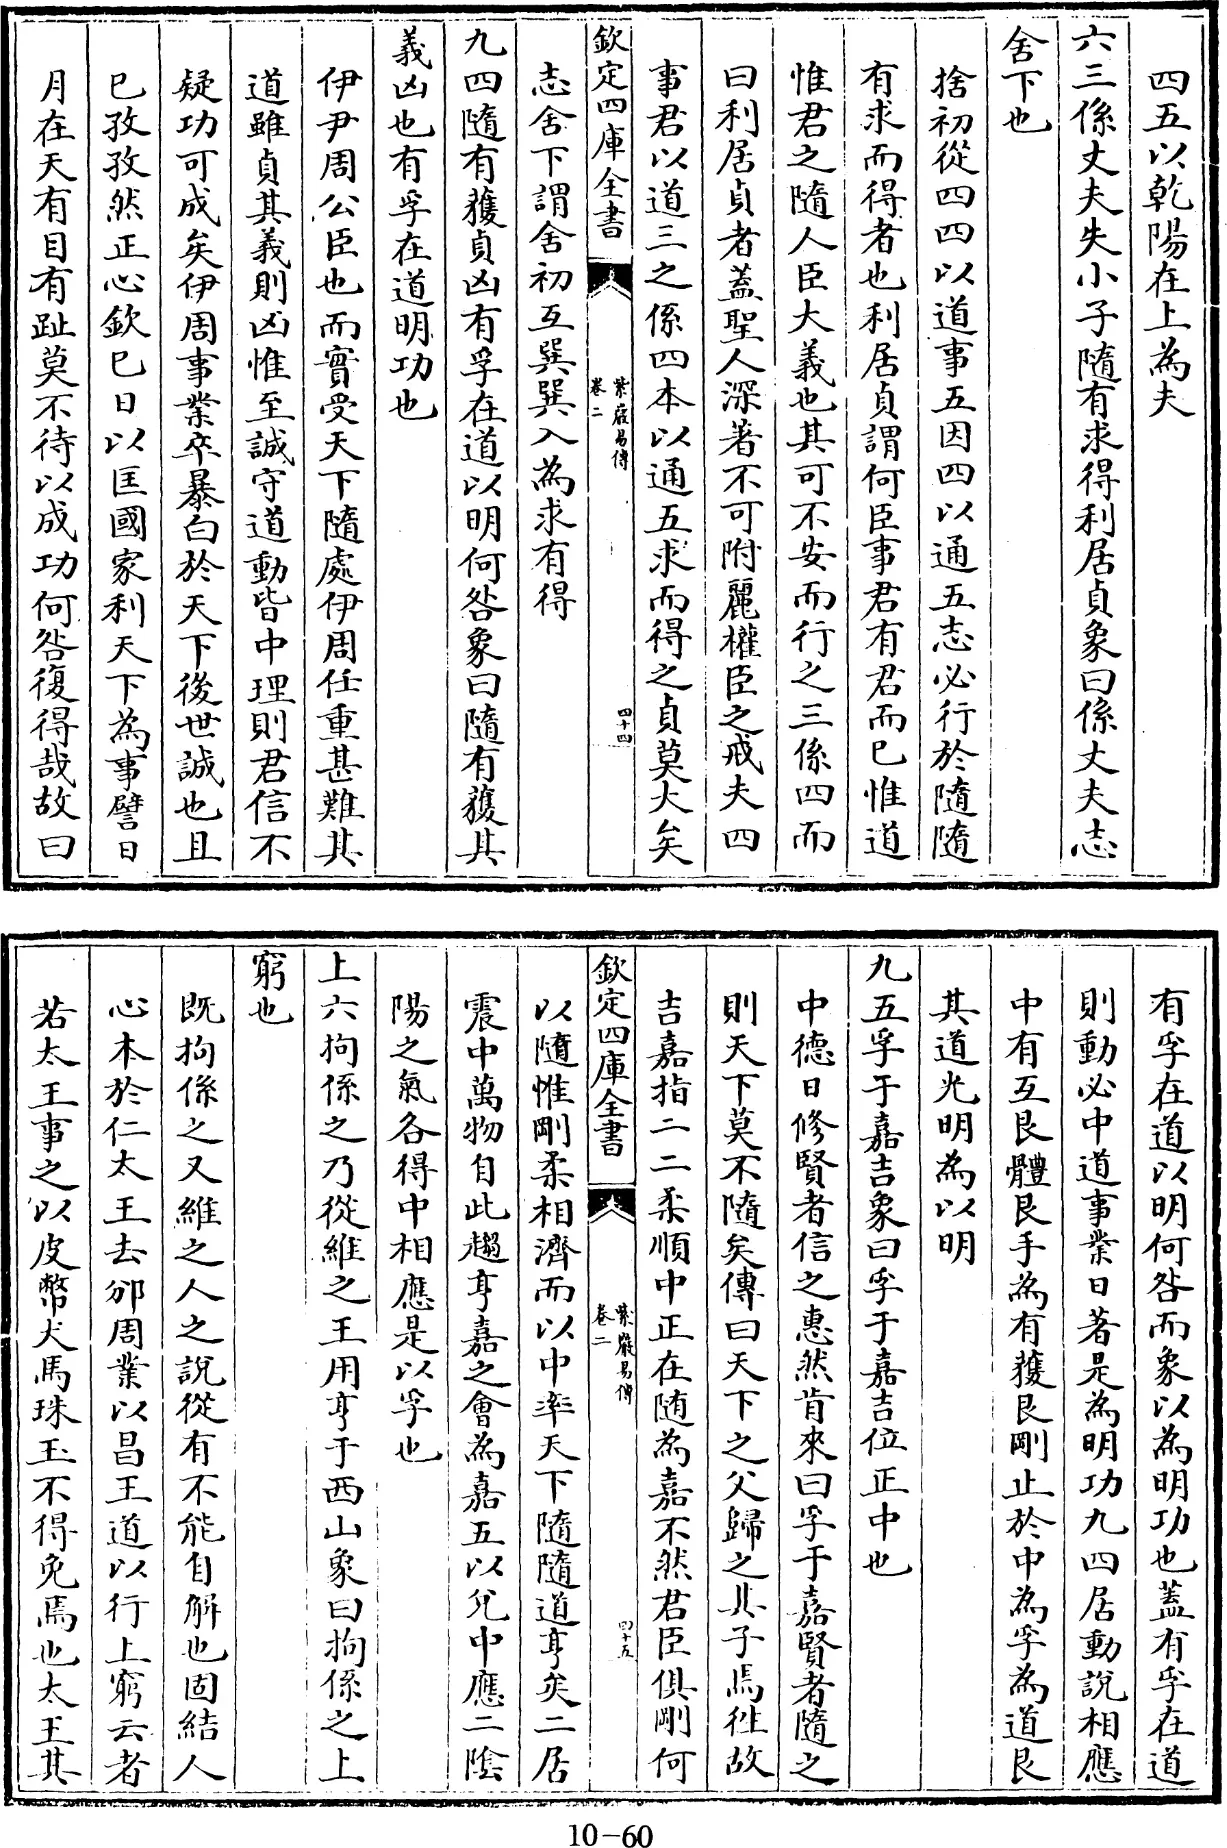 四五以乾陽在上為夫
六三係丈夫失小子隨有求得利居貞象曰係丈夫志
舍下也
捨初從四四以道事五因四以通五志必行於隨隨
有求而得者也利居貞謂何臣事君有君而已惟道
惟君之隨人臣大義也其可不安而行之三係四而
曰利居貞者蓋聖人深著不可附麗權臣之戒夫四
事君以道三之係四本以通五求而得之貞莫大矣
欽定四庫全書
紫巖易傳
卷二
四十四
志舍下謂舍初互巽巽入為求有得
九四隨有獲貞凶有孚在道以明何咎象曰隨有獲其
義凶也有孚在道明功也
伊尹周公臣也而實受天下隨處伊周任重甚難其
道雖貞其義則凶惟至誠守道動皆中理則君信不
疑功可成矣伊周事業卒暴白於天下後世誠也且
已孜孜然正心欽已日以匡國家利天下為事譬日
月在天有目有趾莫不待以成功何咎復得哉故曰
有孚在道以明何咎而象以為明功也蓋有孚在道
則動必中道事業日著是為明功九四居動說相應
中有互艮體艮手為有獲艮剛止於中為孚為道艮
其道光明為以明
九五孚于嘉吉象曰孚于嘉吉位正中也
中德日修賢者信之惠然肯來曰孚于嘉賢者隨之
則天下莫不隨矣傳曰天下之父歸之其子焉往故
吉嘉指二二柔順中正在隨為嘉不然君臣俱剛何
欽定四庫全書
紫巖易傳
卷二
四十五
以隨惟剛柔相濟而以中率天下隨隨道亨矣二居
震中萬物自此趨亨嘉之會為嘉五以兌中應二陰
陽之氣各得中相應是以孚也
上六拘係之乃從維之王用亨于西山象曰拘係之上
窮也
既拘係之又維之人之說從有不能自解也固結人
心本於仁太王去邠周業以昌王道以行上窮云者
若太王事之以皮幣犬馬珠玉不得免焉也太王其
10-60